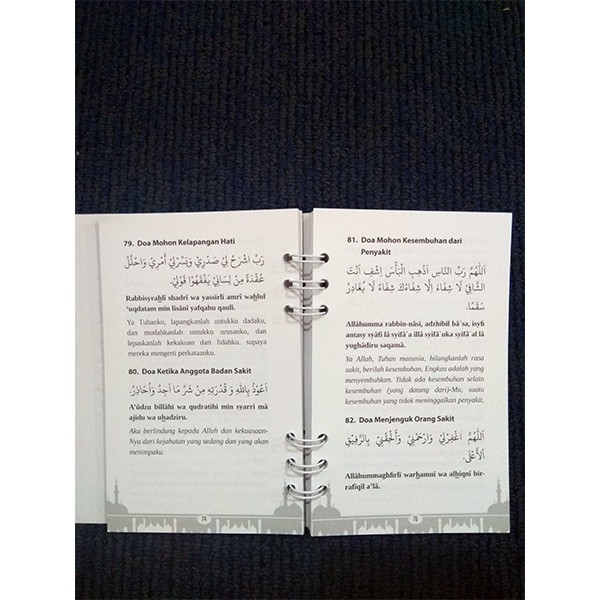 79. Doa Mohon Kelapangan Hati
رَبِّ اشْرَحْ لِيْ صَدْرِيْ وَيَسِّرْلِيْ أَمْرِيْ وَاحْلُلْ
عُقْدَةً مِنْ لِسَانِيْ يَفْقَهُوْا قَوْلِيْ.
Rabbisyrahlî shadrî wa yassirlî amrî wahlul
'uqdatam min lisânî yafqahu qaulî.
Ya Tuhanku, lapangkanlah untukku dadaku,
dan mudahkanlah untukku urusanku, dan
lepaskanlah kekakuan dari lidahku. supaya
mereka mengerti perkataanku.
80. Doa Ketika Anggota Badan Sakit
أَعُوْذُ بِاللّٰهِ وَ قُدْرَتِهِ مِنْ شَرِّ مَا أَجِدُ وَأُحَاذِرُ.
A'ûdzu billâhi wa qudratihi min syarri mâ
ajidu wa uhadziru.
Aku berlindung kepada Allah dan kekuasaan-
Nya dari kejahatan yang sedang dan yang akan
menimpaku.
74
81. Doa Mohon Kesembuhan dari
Penyakit
اَللّٰهُمَّ رَبَّ النَّاسِ اَذْهِبِ الْبَأْسَ اِشْفِ اَنْتَ
الشَّافِيْ لَا شِفَاءَ اِلَّا شِفَاءُكَ شِفَاءً لَا يُغَادِرُ
سَقَمًا.
Allâhumma rabbin-nâsi, adzhibil bâ'sa, isyfi
antasy syâfî lâ syifâ'a illâ syifâ'uka syifâ'al lâ
yughâdiru saqamâ.
Ya Allah, Tuhan manusia, hilangkanlah rasa
sakit, berilah kesembuhan, Engkau adalah yang
menyembuhkan. Tidak ada kesembuhan selain
kesembuhan (yang datang dari)-Mu, suatu
kesembuhan yang tidak meninggalkan penyakit.
82. Doa Menjenguk Orang Sakit
اَللّٰهُمَّ اغْفِرْلِيْ وَارْحَمْنِيْ وَأَلْحِقْنِيْ بِالرَّفِيْقِ
الْأَعْلَى.
Allâhummaghfirlî warhamnî wa alhiqnî bir-
rafîqil a'lâ.
75